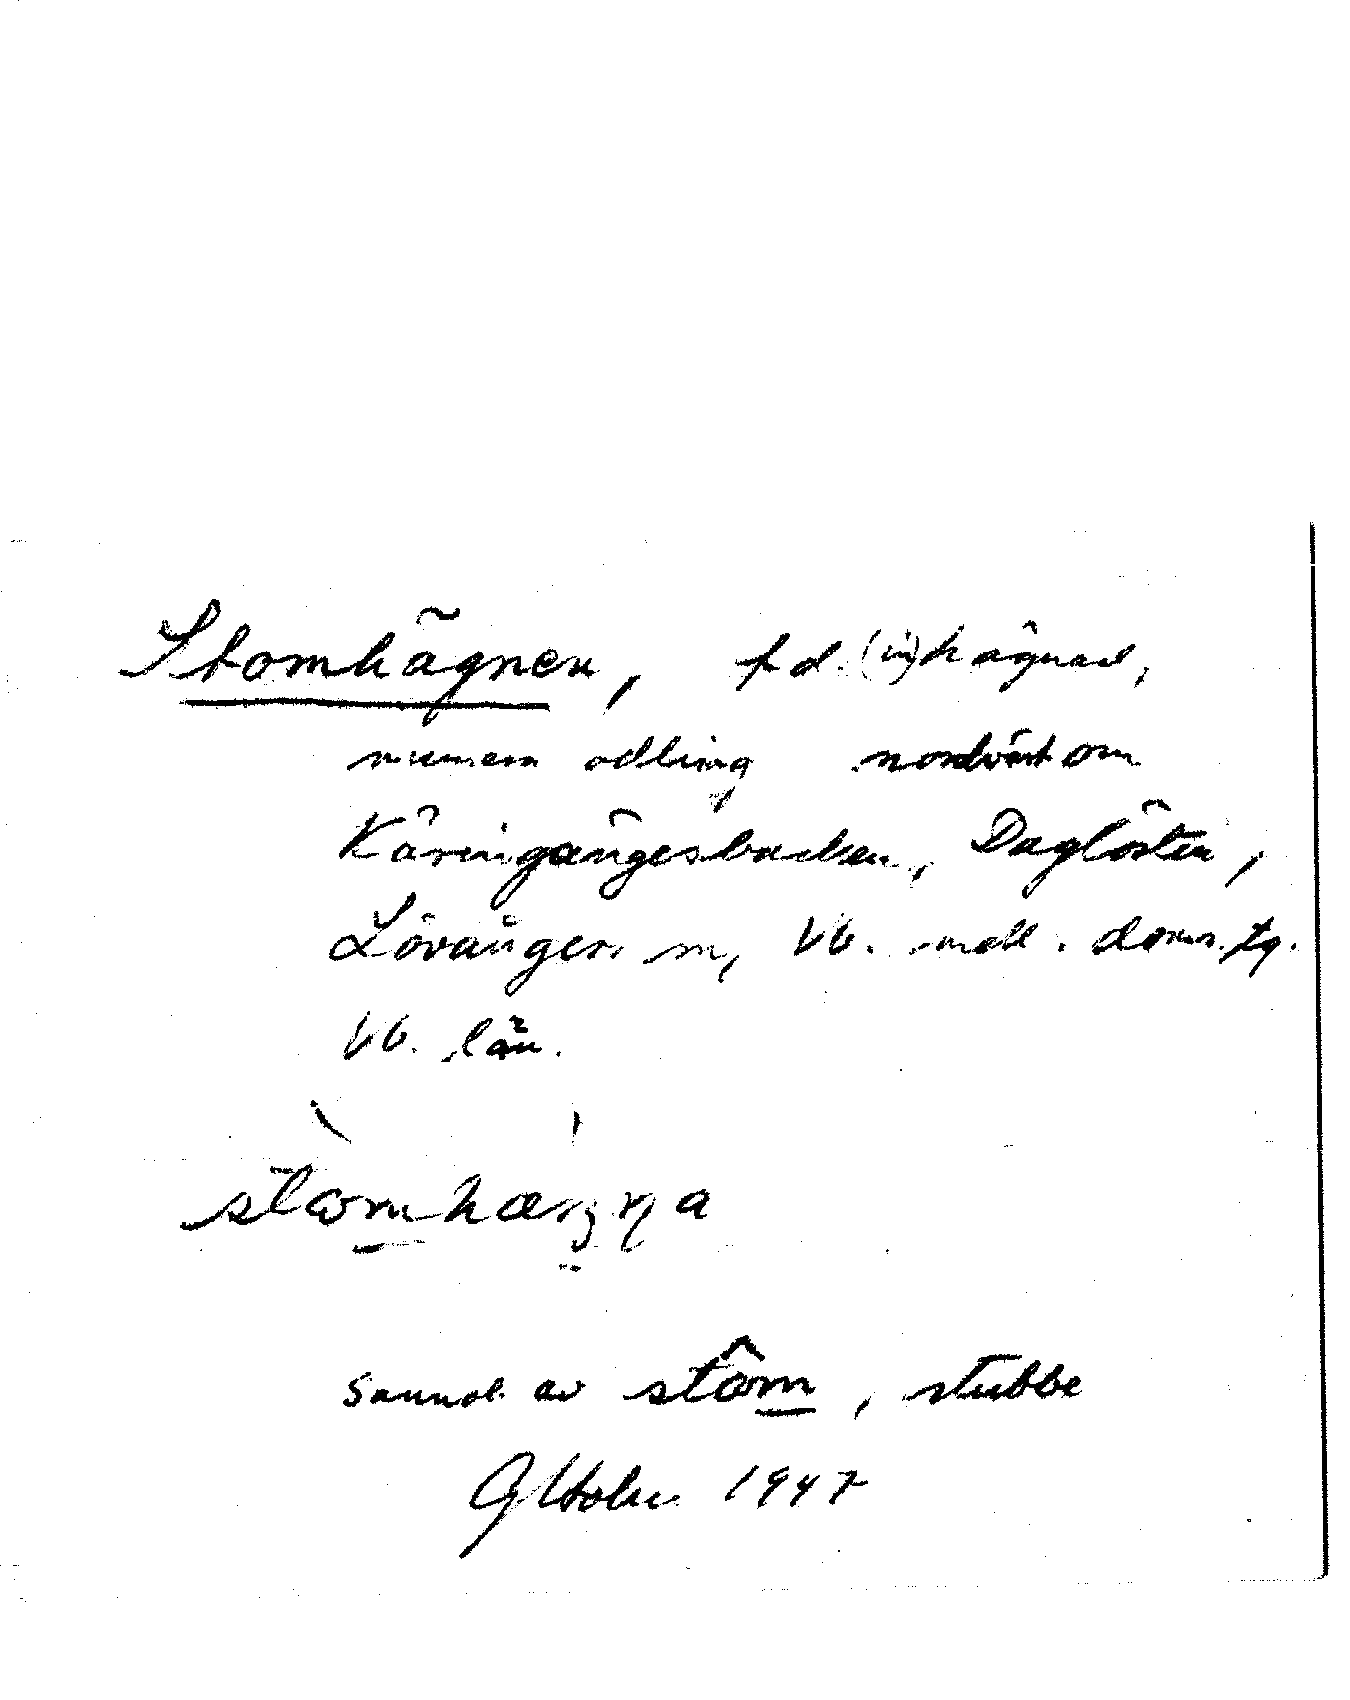 Stomhägnen, f d. (in)hägnad,
numera odling nordväst om
Käringängesbacken, Daglösten,
Lövånger sn, Vb. mell. doms. tg.
Vb. län.
stomhæŋna
sannol. av stôm, stubbe
1947